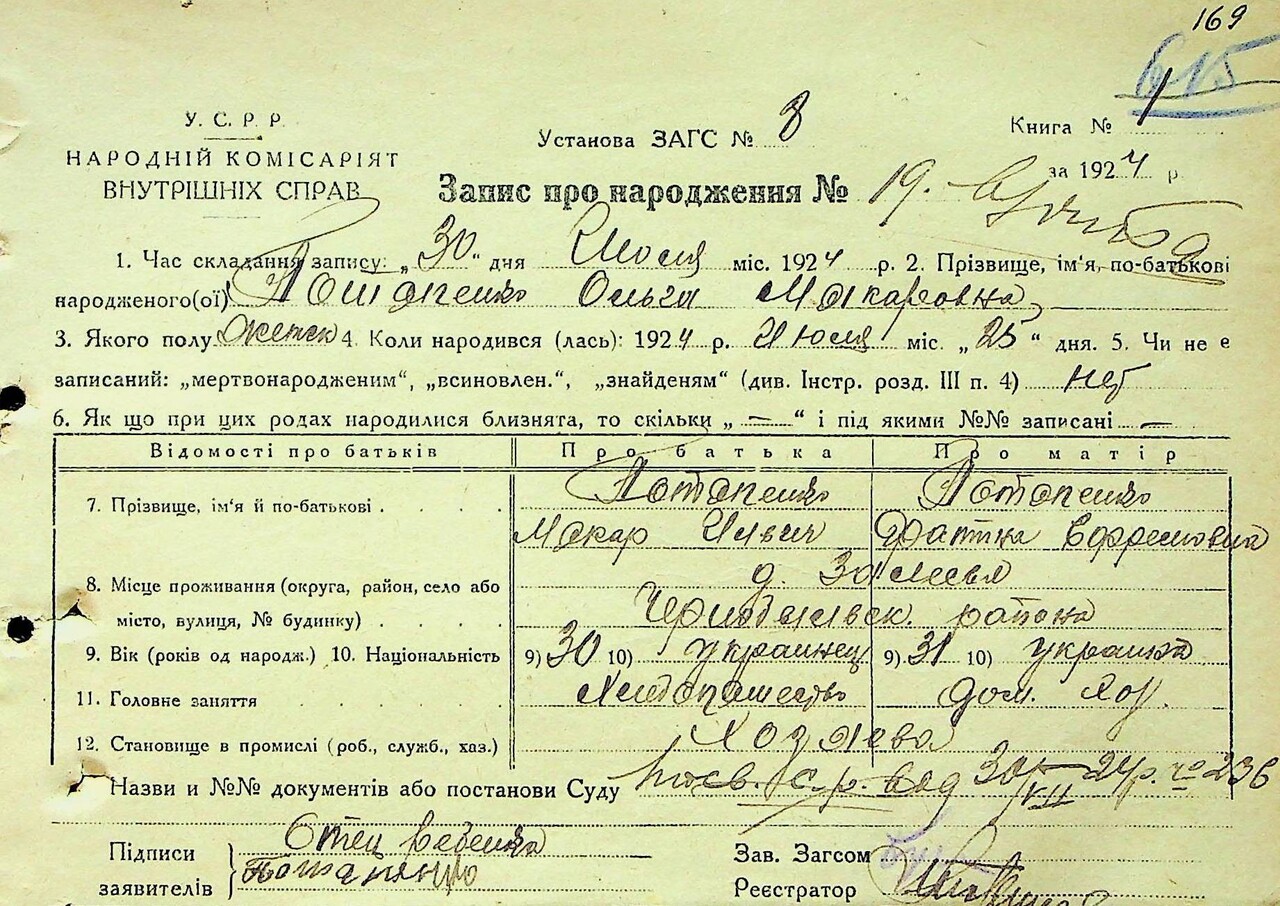 169
615
У. С. Р. Р.
НАРОДНІЙ КОМІСАРІЯТ
ВНУТРІШНІХ СПРАВ
Установа ЗАГС № 8
Книга № 1
за 1924 р.
Запис про народження № 19.
1. Час складання запису: „30“ дня Июля міс. 1924 р. 2. Прізвище, ім'я, по-батькові
народженого(ої) Потапенко Ольга Макаровна
3. Якого полу женск 4. Коли народився (лась): 1924 р. Июля міс. „25“ дня. 5. Чи не є
записаний: „мертвонародженим“, „всиновлен.“, „знайденям“ (див. Інстр. розд. III п. 4) нет
6. Як що при цих родах народилися близнята, то скільки „—“ і під якими №№ записані —
Відомості про батьків Про батька Про матір
Потапенко Потапенко
7. Прізвище, ім'я й по-батькові . . . .
Макар Ильич Ефремовна
8. Місце проживання (округа, район, село або д. Залесья
місто, вулиця, № будинку) . . . . Чернобыльск. района
9. Вік (років од народж.) 10. Національність 9) 30 10) украинец 9) 31 10) украинка
11. Головне заняття . . . . . Хлебопашество дом. хоз.
12. Становище в промислі (роб., служб., хаз.) Хозяева
Назви и №№ документів або постанови Суду 30/VII 24 р. № 236
Отец ребенка
Підписи
заявителів Потапенко
Зав. Загсом
Реєстратор